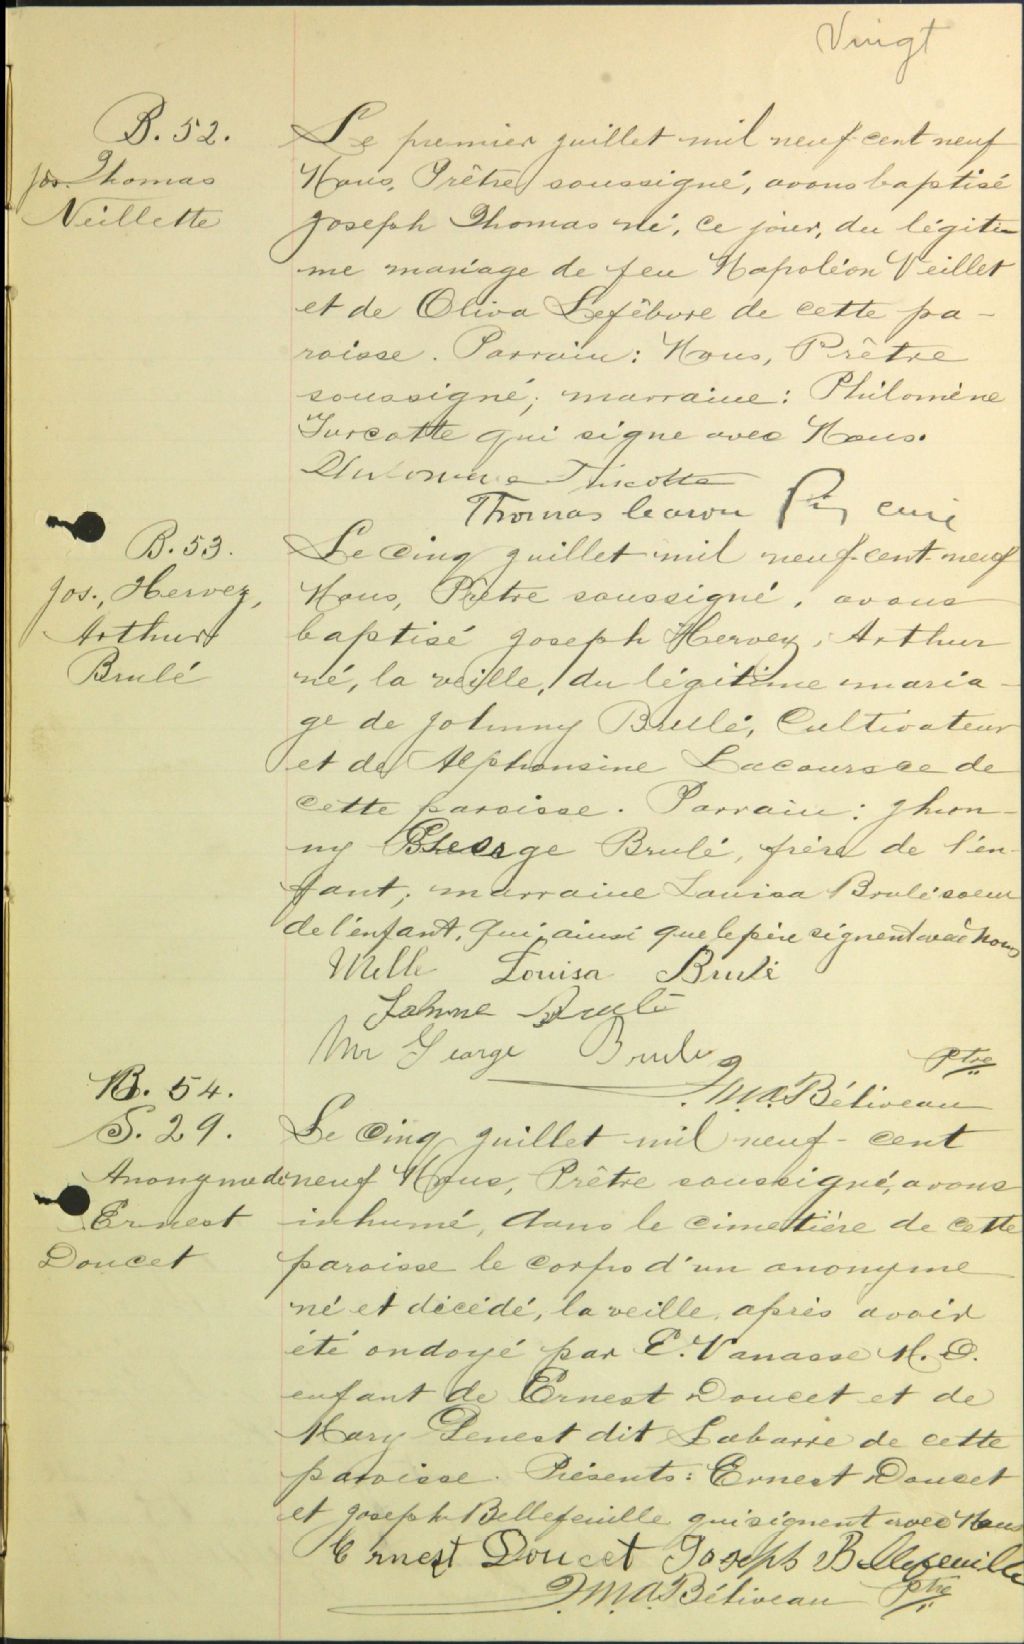 Vingt
B. 52.
Jos. Thomas
Veillette
Le premier juillet mil neuf-cent neuf
Nous, Prêtre soussigné, avons baptisé
Joseph Thomas né, ce jour, du légiti-
me mariage de feu Napoléon Veillet
et de Oliva Lefêbvre de cette pa-
roisse. Parrain: Nous, Prêtre
soussigné; marraine: Philomène
Turcotte qui signe avec Nous.
Thomas Caron Ptre curé
B. 53.
Jos., Hervez,
Arthur
Brulé
Le cinq juillet mil neuf-cent-neuf
Nous, Prêtre soussigné, avons
baptisé Joseph Hervez, Arthur
né, la veille, du légitime maria-
ge de Johnny Brulé, Cultivateur
et de Alphonsine Lacourse de
cette paroisse. Parrain: Jhon-
ny George Brulé, frère de l'en-
fant; marraine Louisa Brulé soeur
de l'enfant. Qui, ainsi que le père signent avec Nous
Melle Louisa Brulé
Johnne Brulé
Mr George Brule
J. M. A. Béliveau Ptre
B. 54.
S. 29.
Anonyme de
Ernest
Doucet
Le cinq juillet mil neuf-cent
neuf Nous, Prêtre soussigné, avons
inhumé, dans le cimetière de cette
paroisse le corps d'un anonyme
né et décédé, la veille, après avoir
été ondoyé par E. Vanasse M. D.
enfant de Ernest Doucet et de
Mary Genest dit Labarre de cette
paroisse. Présents: Ernest Doucet
et Joseph Bellefeuille qui signent avec Nous
Ernest Doucet Joseph Bellefeuille
J. M. A. Béliveau Ptre